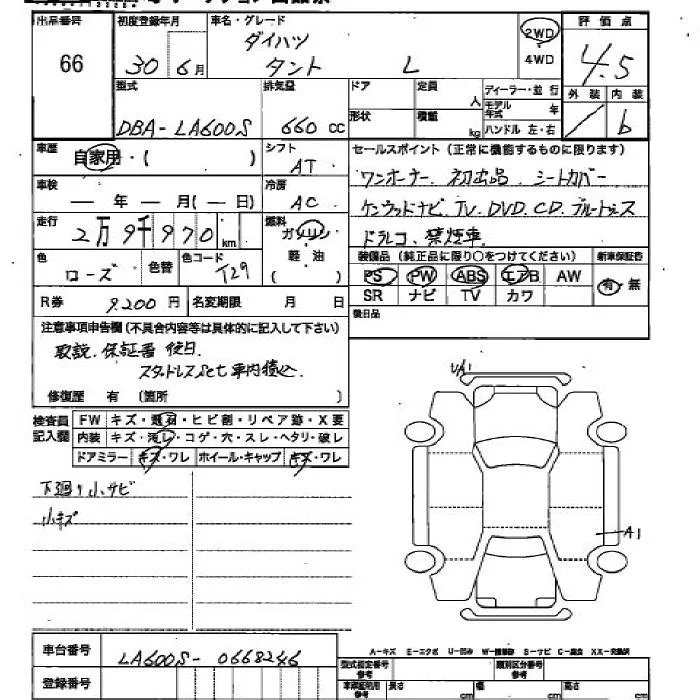 出品番号
66
初度登録年月
30 6月
車名・グレード
ダイハツ
タント L
2WD
4WD
評価点
4.5
型式
DBA-LA600S
排気量
660 cc
ドア
定員
人
形状
積載
kg
ディーラー・並行
モデル年式 年
ハンドル 左・右
外装
内装
/ b
車歴
自家用・( )
シフト
AT
セールスポイント (正常に機能するものに限ります)
ワンオーナー. 初出品. シートカバー
ケンウッドナビ. TV. DVD. CD. ブルートゥース
ドラレコ. 禁煙車.
車検
— 年 — 月(— 日)
冷房
AC
走行
2万9千970km
燃料
ガソリン
軽油
( )
色
ローズ
色替
色コード
T29
装備品 (純正品に限り○をつけてください)
新車保証書
PS PW ABS エアB AW
SR ナビ TV カワ
有・無
R券 9,200円
名変期限 月 日
後日品
注意事項申告欄(不具合内容等は具体的に記入して下さい)
取説. 保証書 後日.
スタッドレスSet 車内積込.
修復歴 有 (箇所 )
検査員記入欄
FW キズ・飛石・ヒビ割・リペア跡・X要
内装 キズ・汚レ・コゲ・穴・スレ・ヘタリ・破レ
ドアミラー キズ・ワレ ホイール・キャップ キズ・ワレ
下廻り小サビ
小キズ
A1
車台番号
LA600S-0668246
登録番号
A-キズ E-エクボ U-凹み W-補修跡 S-サビ C-腐食 XX-交換済
型式指定番号 参考
類別区分番号 参考
長さ cm 幅 cm 高さ cm